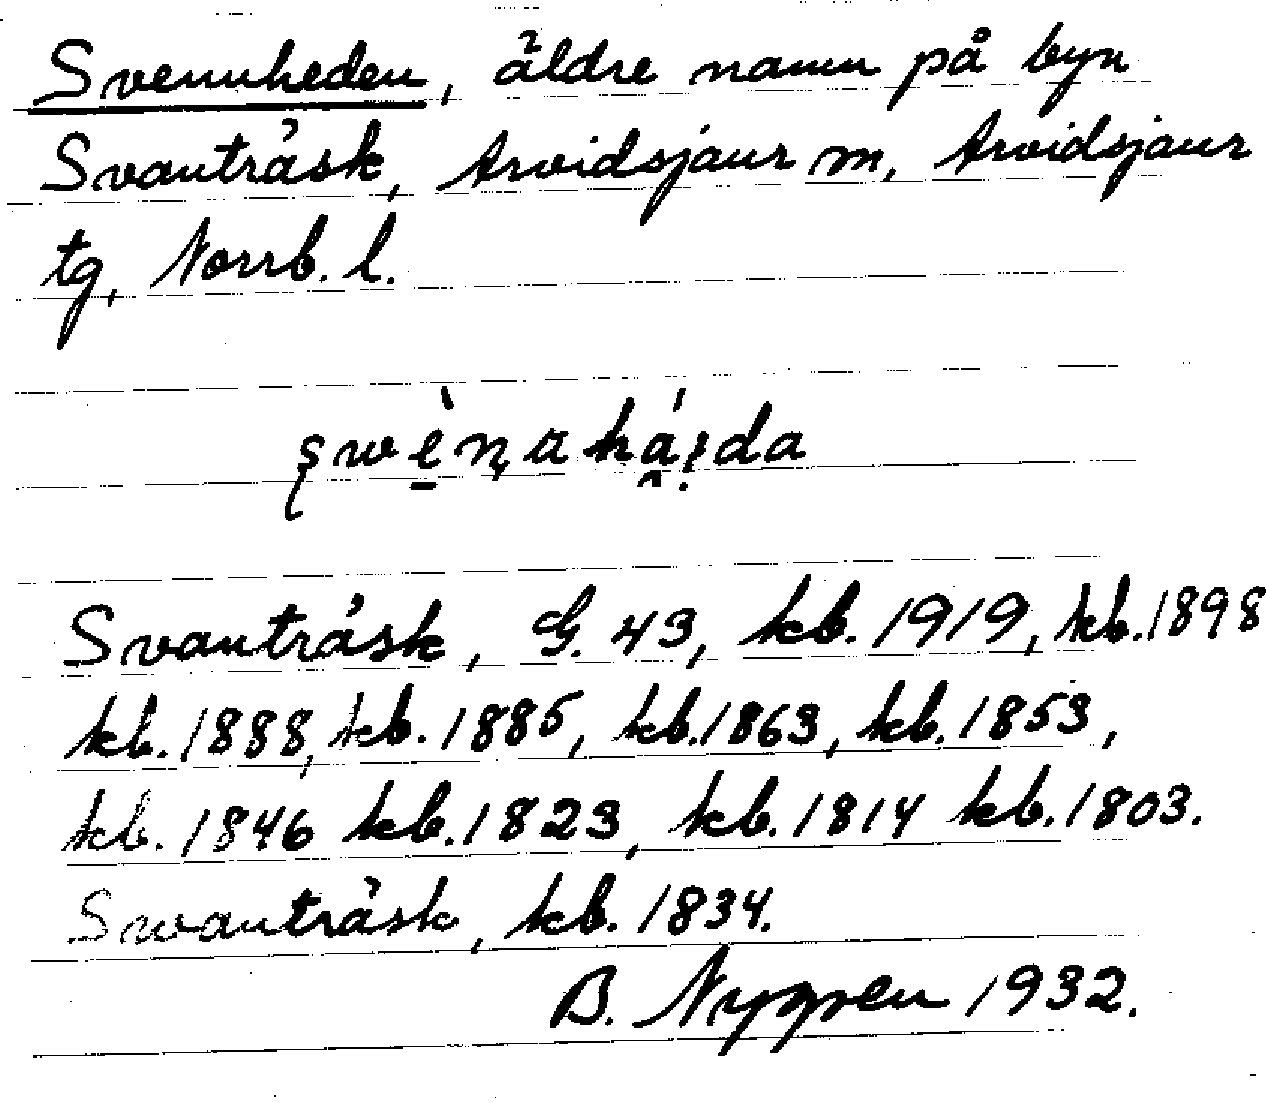 Svennheden, äldre namn på byn
Svanträsk, Arvidsjaur m, Arvidsjaur
tg, Norrb. l.
Svanträsk, G. 43, kb. 1919, kb. 1898
kb. 1888, kb. 1885, kb. 1863, kb. 1853,
kb. 1846 kb. 1823, kb. 1814 kb. 1803.
Swanträsk, kb. 1834.
B. Nygren 1932.